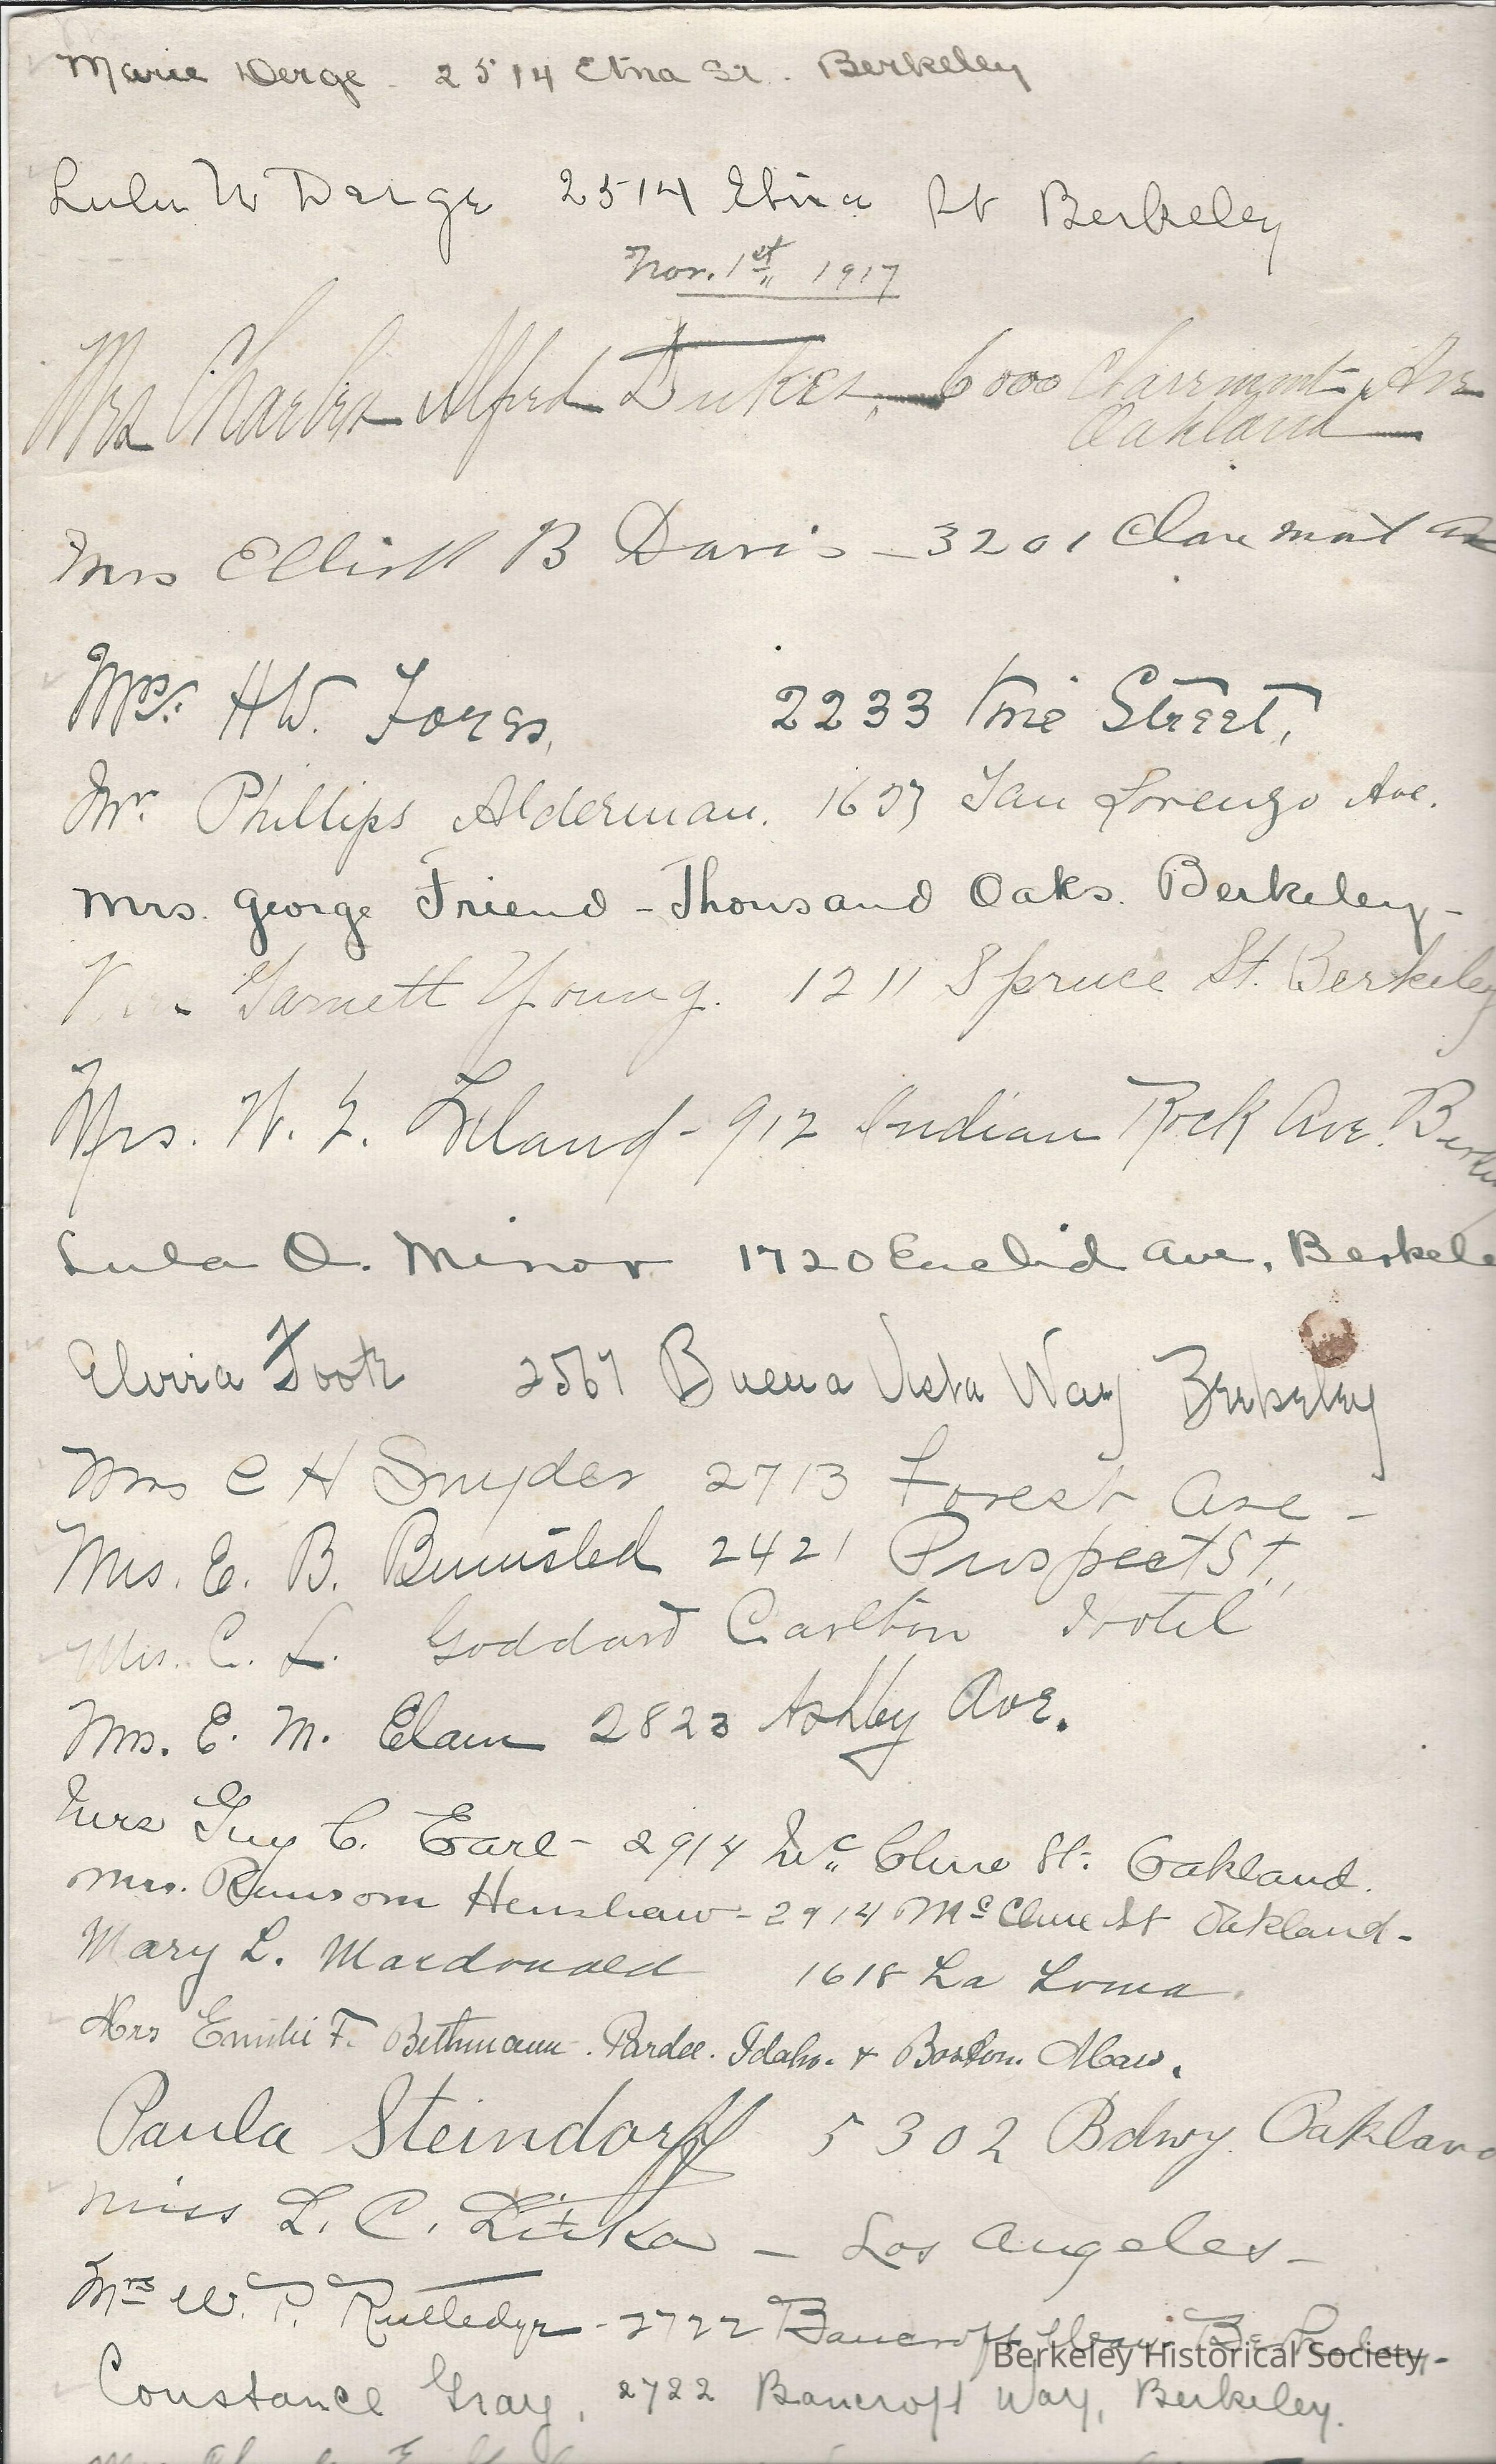 Marie Derge. 2514 Etna St. Berkeley
Lulu W Derge 2514 Etna St Berkeley
Nov. 1st 1917
Mrs Charles Alfred Dukes, 6000 Claremont Ave
Oakland
Mrs Elliott B Davis - 3201 Claremont
Mrs. H.W. 2233 Vine Street,
Mr. Phillips Alderman. San Lorenzo Ave.
Mrs. George Friend - Thousand Oaks. Berkeley -
Garnett Young. 1211 Spruce St. Berkeley
Mrs. W. F. Leland - 912 Indian Rock Ave. Berk
Lula O. Minor 1720 Euclid Ave, Berkele
Elvira Foote 2567 Buena Vista Way Berkeley
Mrs C H Snyder 2713 Forest Ave -
Mrs. E. B. Bumsted 2421 Prospect St.
Mrs. C. L. Goddard Carlton Hotel
Mrs. E. M. Elam 2823 Ashby Ave.
Mrs Guy C. Earl - 2914 Mc Clure St. Oakland.
Mrs. Ransom Henshaw - 2914 McClure St Oakland -
Mary L. Macdonald 1618 La Loma.
Mrs Emilie F. Bethmann. Pardee. Idaho. & Boston. Mass.
Paula Steindorff 5302 Bdwy. Oakland
Miss L. C. - Los Angeles -
Mrs W. P. Rutledge - 2722 Bancroft Way. Berkeley -
Berkeley Historical Society
Constance Gray, 2722 Bancroft Way, Berkeley.